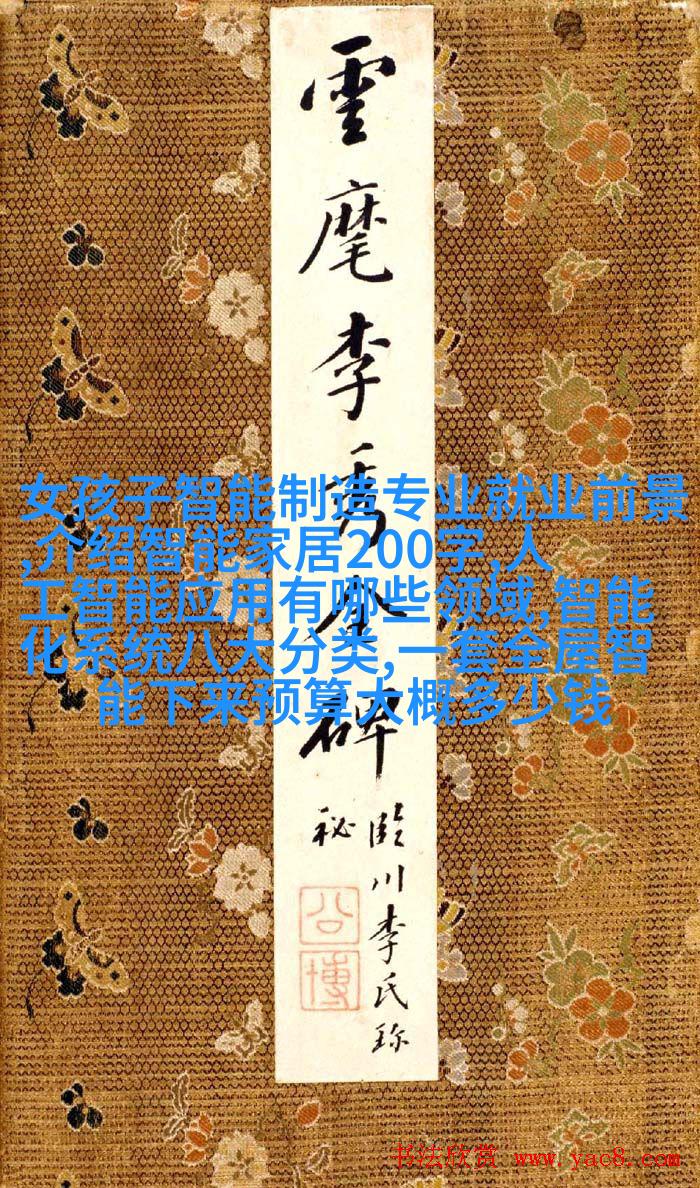 雲麾李秀全碑
臨川李氏珎
秘
公
博
女孩子智能制造专业就业前景
,介绍智能家居200字,人
工智能应用有哪些领域,智能
化系统八大分类,一套全屋智
能下来预算大概多少钱
书法欣赏 www.yac8.com